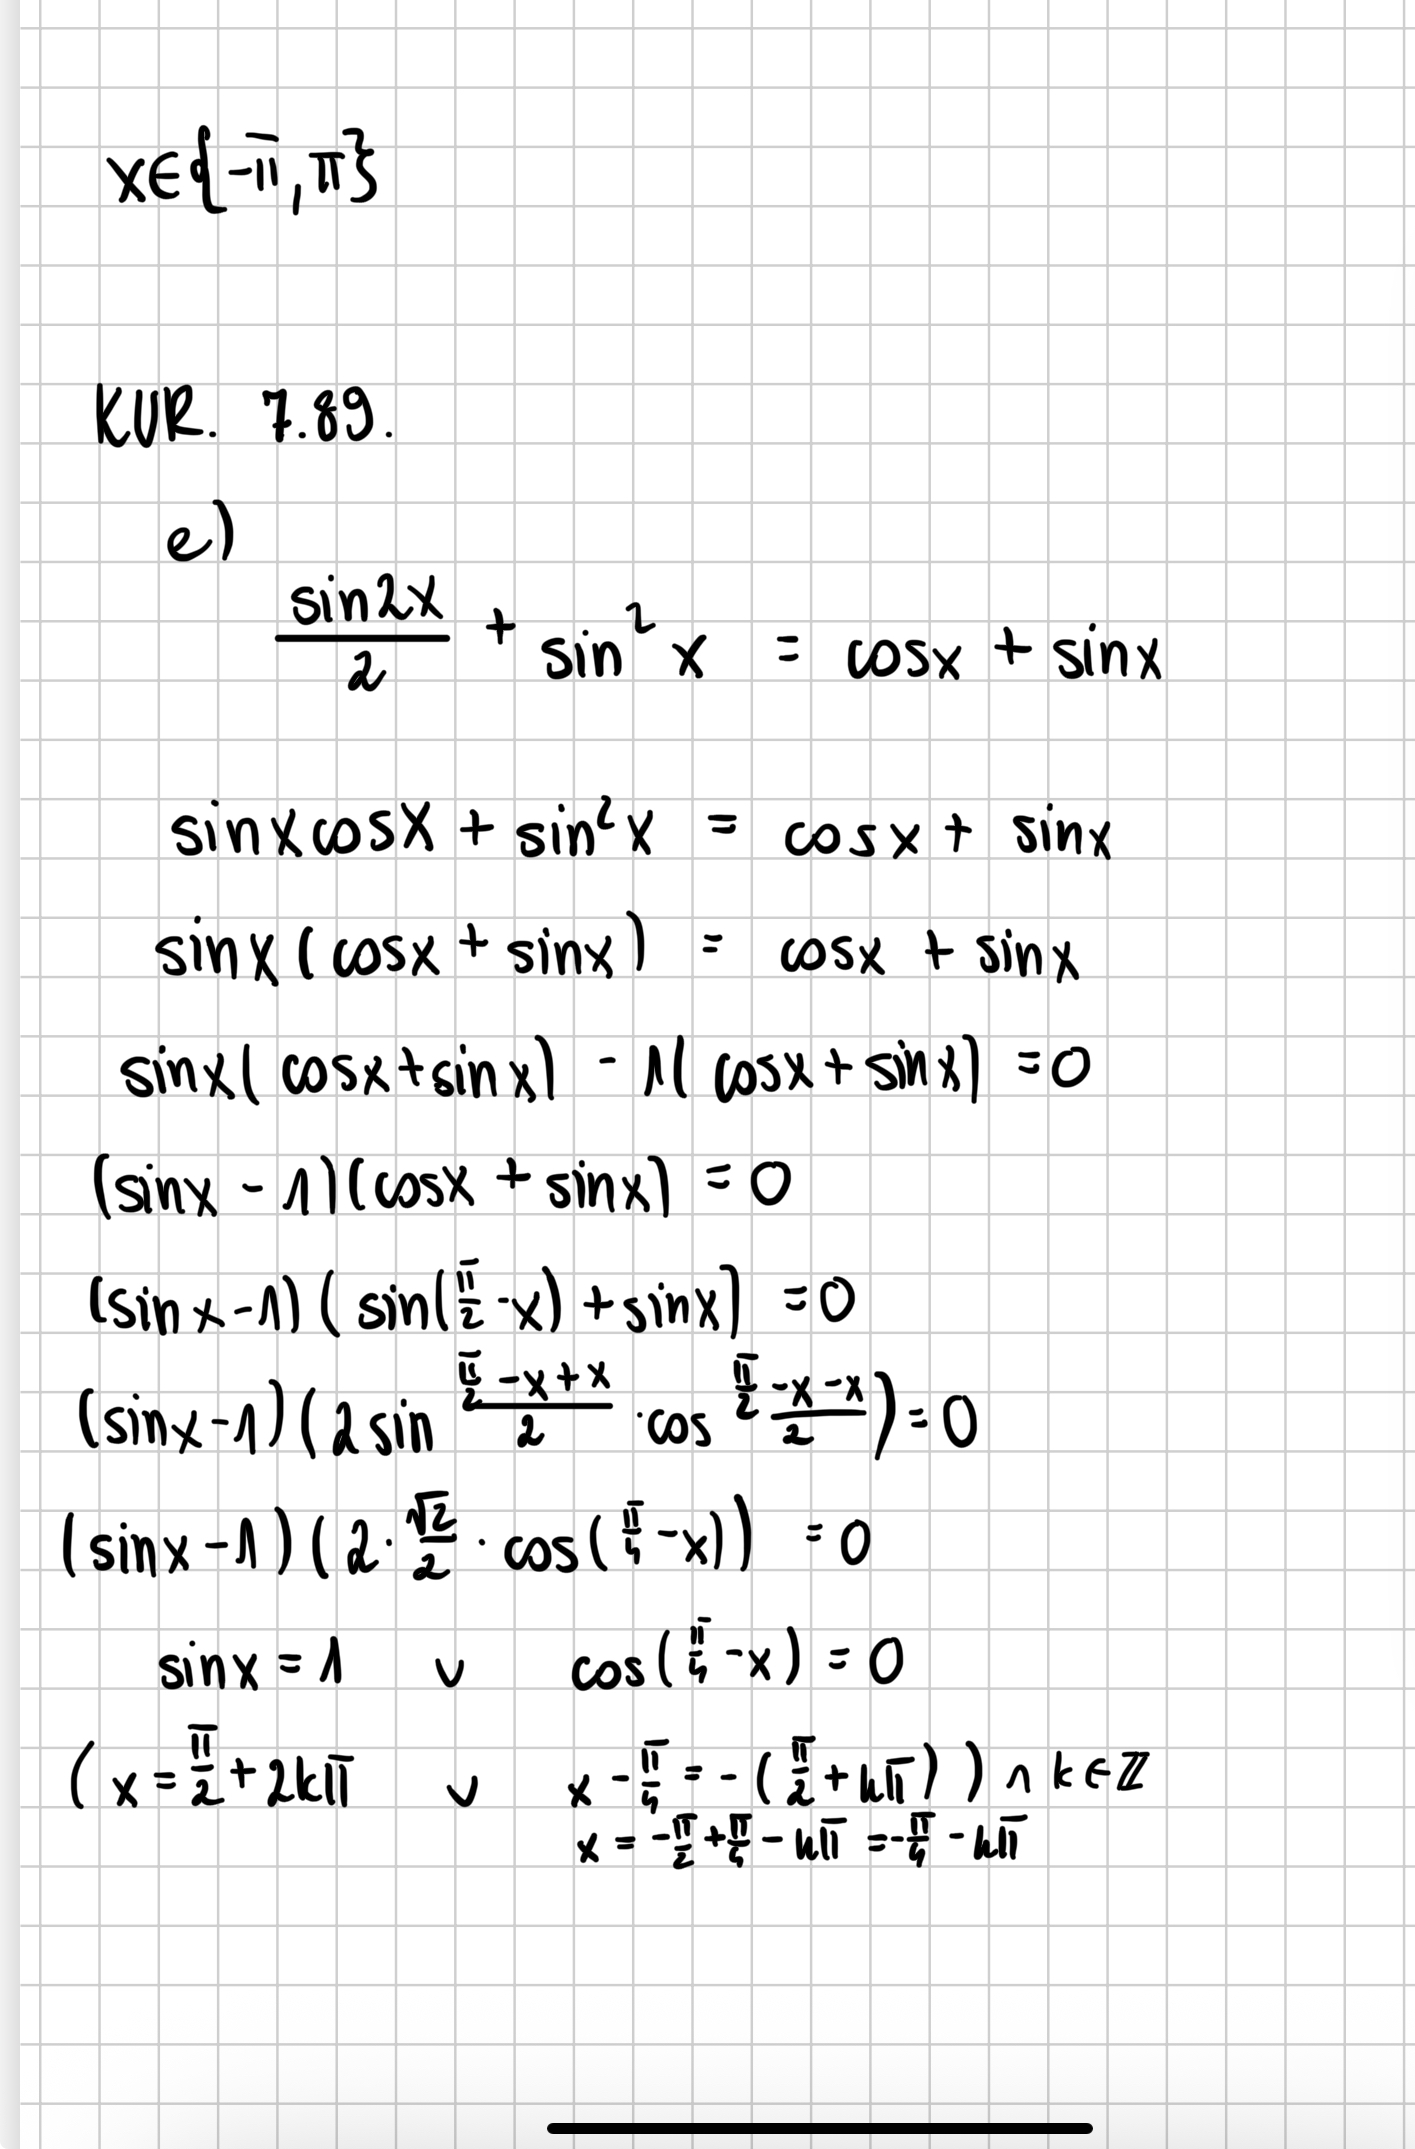 x∈{-π, π}
KUR. 7.89.
e)
sin2x/2 + sin²x = cosx + sinx
sinxcosx + sin²x = cosx + sinx
sinx(cosx + sinx) = cosx + sinx
sinx(cosx+sinx) - 1(cosx+sinx) = 0
(sinx - 1)(cosx + sinx) = 0
(sinx-1)(sin(π/2-x)+sinx) = 0
(sinx-1)(2sin (π/2-x+x)/2 · cos (π/2-x-x)/2) = 0
(sinx-1)(2·√2/2 · cos(π/4-x)) = 0
sinx = 1 ∨ cos(π/4-x) = 0
(x = π/2 + 2kπ ∨ x - π/4 = -(π/2+kπ)) ∩ k∈ℤ
x = -π/2+π/4 - kπ = -π/4 - kπ